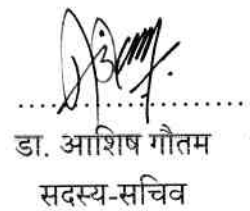 डा. आशिष गौतम
सदस्य-सचिव